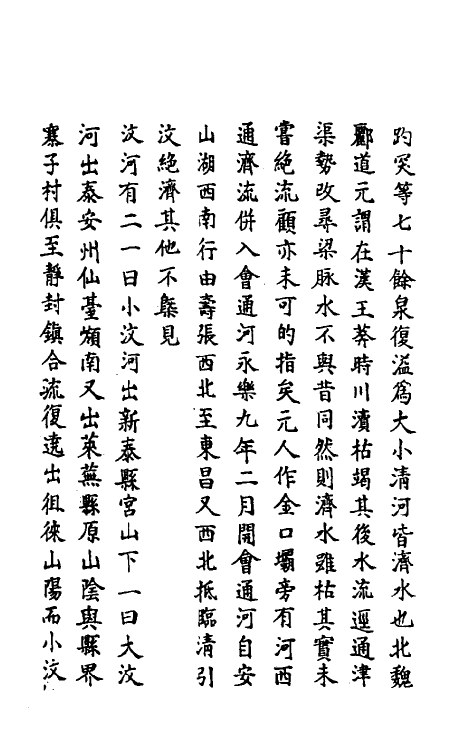 趵突等七十餘泉復溢爲大小清河皆濟水也北魏
酈道元謂在漢王莽時川瀆枯竭其後水流逕通津
渠勢改尋梁脉水不與昔同然則濟水雖枯其實未
嘗絶流顧亦未可的指矣元人作金口壩旁有河西
通濟流併入會通河永樂九年二月開會通河自安
山湖西南行由壽張西北至東昌又西北抵臨清引
汶絶濟其他不槩見
汶河有二一曰小汶河出新泰縣宮山下一曰大汶
河出泰安州仙臺嶺南又出萊蕪縣原山陰與縣界
寨子村俱至靜封鎮合流復遶出徂徠山陽而小汶